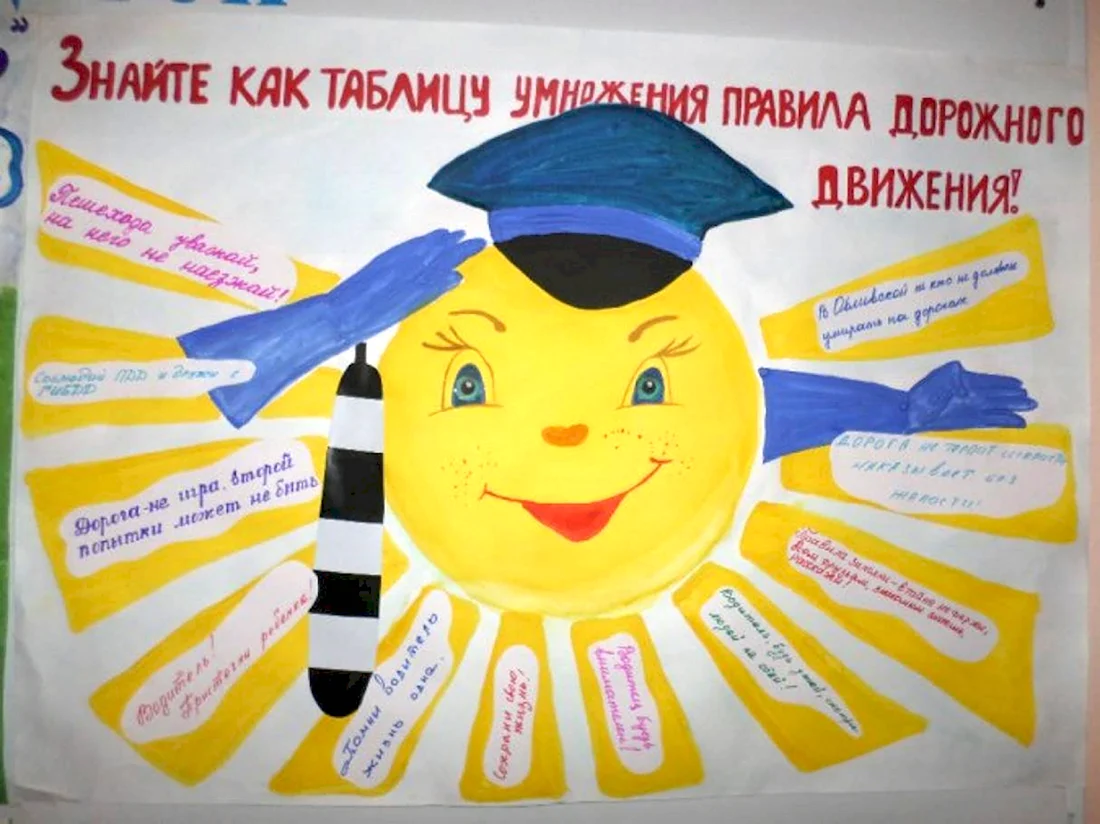 Знайте как таблицу умножения правила дорожного
движения!
Пешехода уважай,
на него не наезжай!
Соблюдай ПДД и дружи с
ГИБДД
Дорога-не игра, второй
попытки может не быть
Водитель!
Пристегни ребенка!
Помни водитель
жизнь одна.
Сохрани свою
жизнь!
Водитель будь
внимателен!
Водитель, будь умней,
людей на обей!
Правила знаем - втайне не держи,
всем друзьям, знакомым
расскажи!
ДОРОГА НЕ ТЕРПИТ ШАЛОСТИ
НАКАЗЫВАЕТ БЕЗ
ЖАЛОСТИ!
В Обливской никто не должен
умирать на дорогах